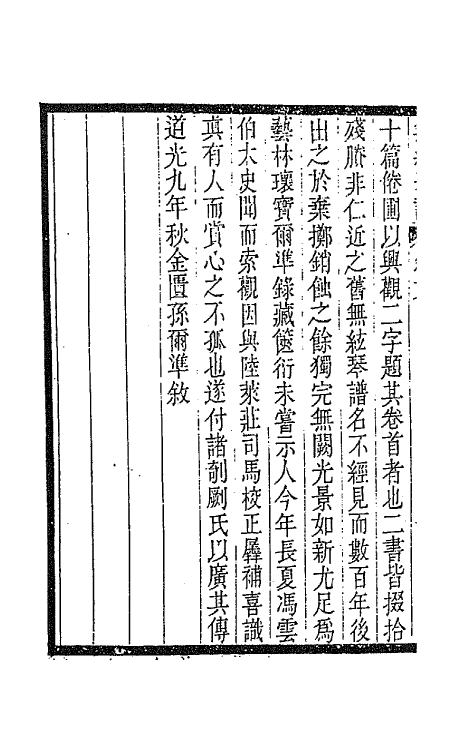 十篇倦圃以興觀二字題其卷首者也二書皆掇拾
殘賸非仁近之舊無絃琴譜名不經見而數百年後
出之於棄擲銷蝕之餘獨完無闕光景如新尤足爲
藝林瓌寶爾準錄藏篋衍未嘗示人今年長夏馮雲
伯太史聞而索觀因與陸萊莊司馬校正羼補喜識
真有人而賞心之不孤也遂付諸剞劂氏以廣其傳
道光九年秋金匱孫爾準敘